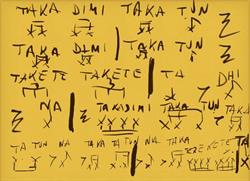 TAKA DIMI TAKA TUN
TAKA DIMI TAKA TUN
TAKETE TAKETE TA DHI
NA TAKADIMI TAKA TUN
TA TUN NA TAKA TA TUN NA TAKA TAKA TUN
TEREKETE TA